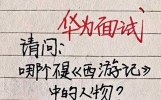 华为面试
请问:
哪个是《西游记》
中的人物?